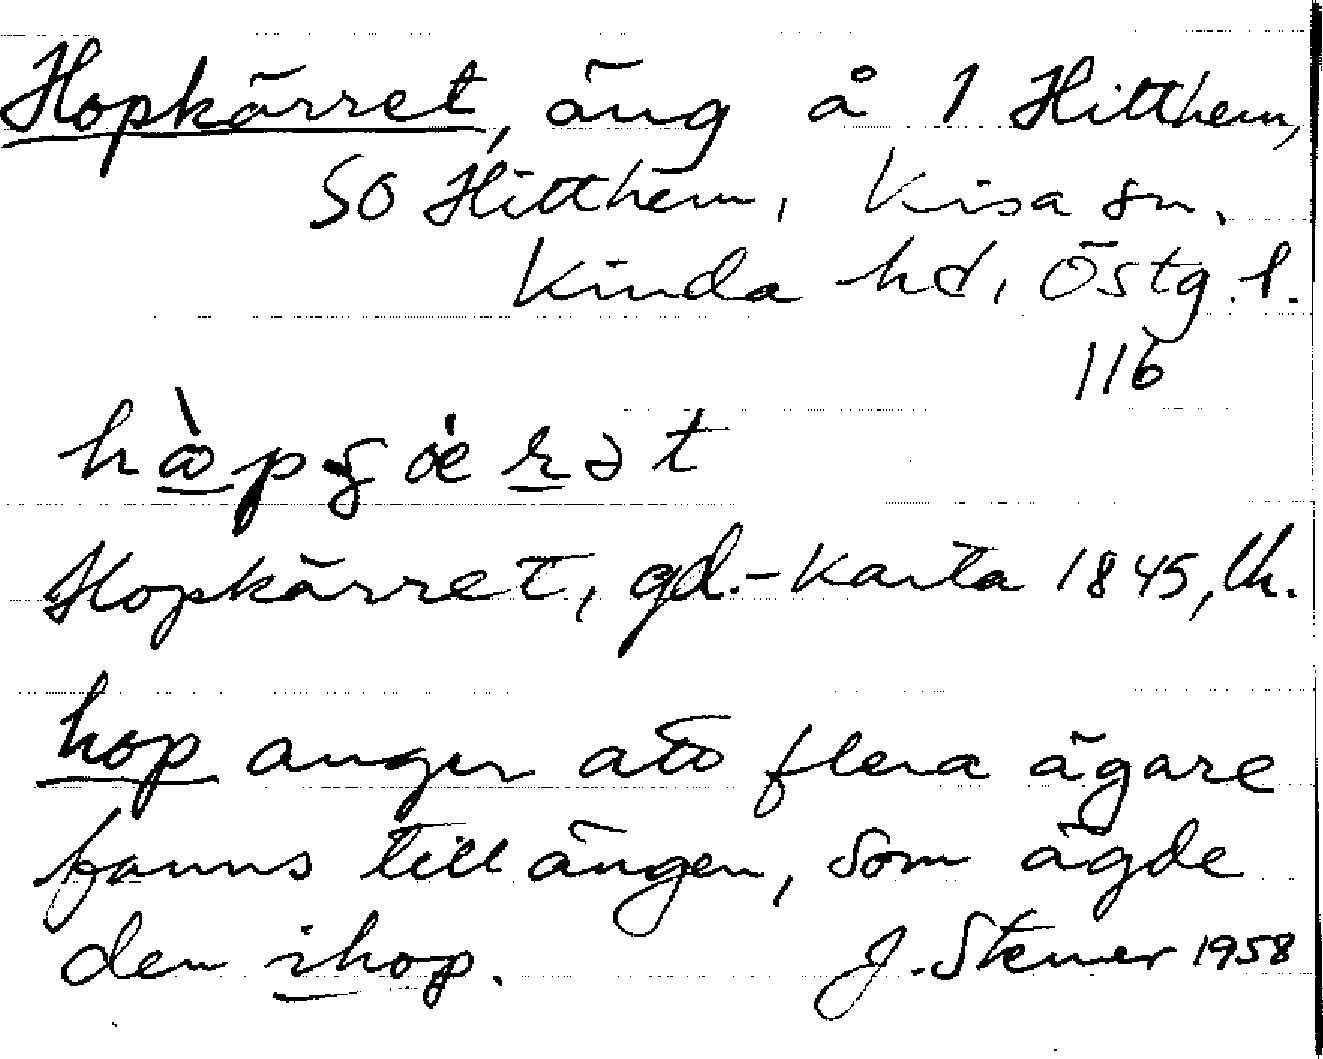 Hopkärret, äng å 1 Hitthem,
SO Hitthem, Kisa sn.
Kinda hd, Östg. l.
116
Hopkärret, gd.-karta 1845, lh.
hop anger att flera ägare
fanns till ängen, som ägde
den ihop. J. Stener 1958